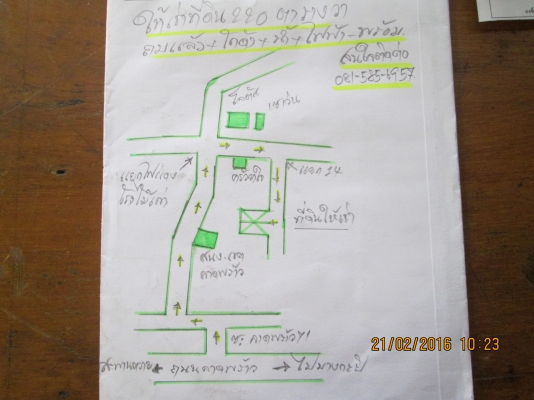 ให้เช่าที่ดิน 220 ตารางวา
ถมแล้ว + โฉนด + น้ำ + ไฟฟ้า - พร้อม
สนใจติดต่อ
081-585-6957
โลตัส
เซเว่น
แยกไฟแดง
แยก 14
ที่ดินให้เช่า
สนง. เขต
ลาดพร้าว
ซ. ลาดพร้าว 71
สะพานควาย
ถนนลาดพร้าว
ไปบางกะปิ
21/02/2016 10:23